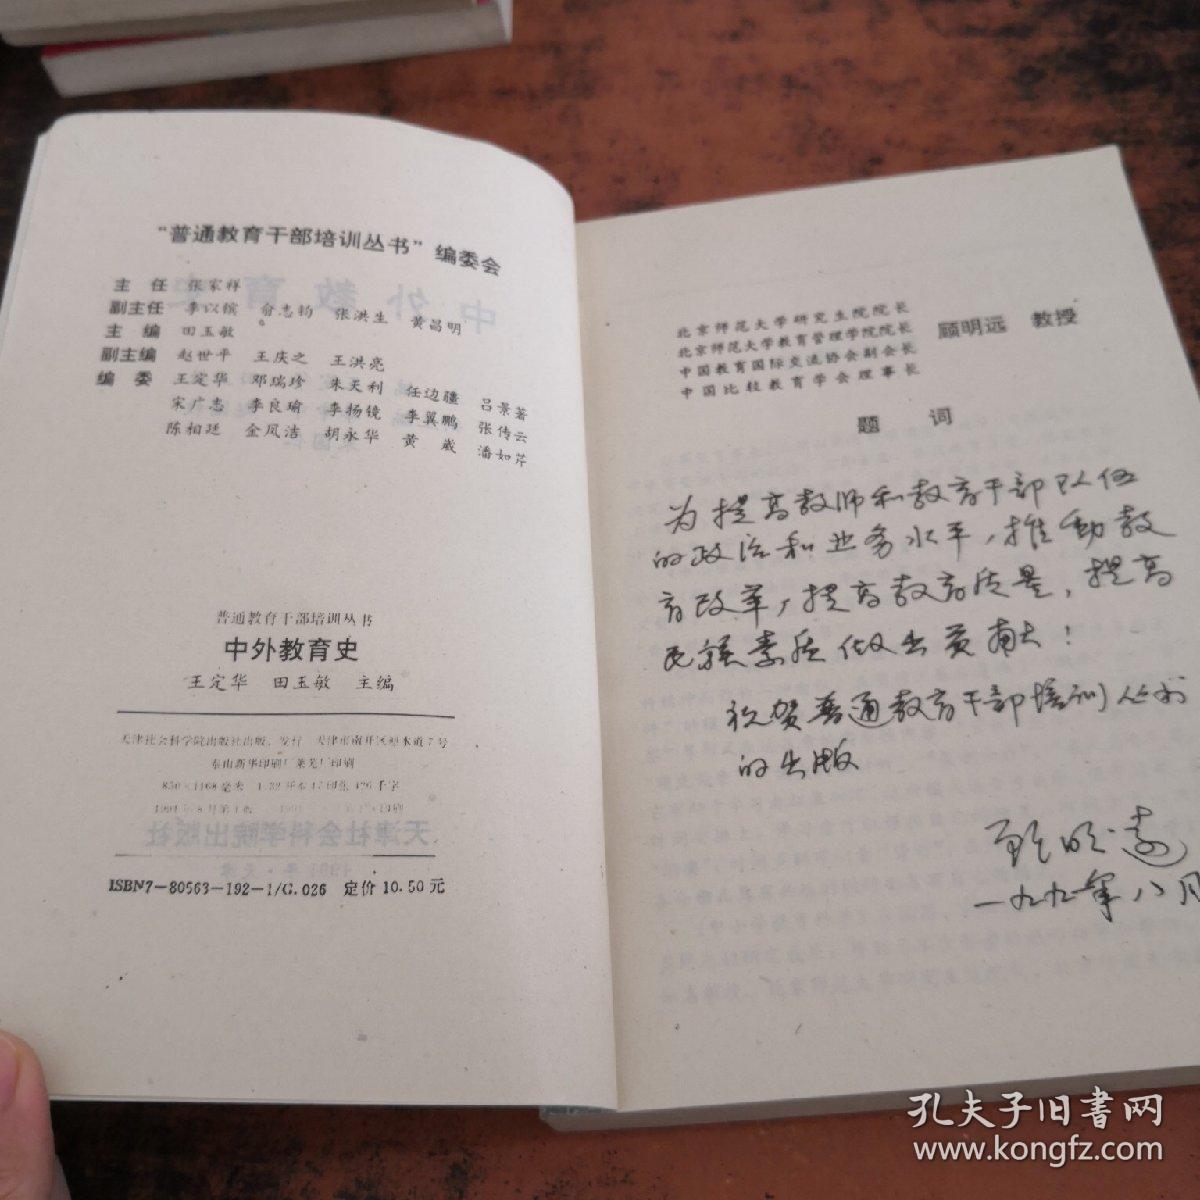 “普通教育干部培训丛书”编委会
主 任 张家祥
副主任 李以镔 俞志钧 张洪生 黄昌明
主 编 田玉敏
副主编 赵世平 王庆之 王洪亮
编 委 王定华 邓瑞珍 朱天利 任边疆 吕景著
宋广志 李良瑜 李扬镜 李翼鹏 张传云
陈相廷 金凤洁 胡永华 黄 崴 潘如芹
普通教育干部培训丛书
中外教育史
王定华 田玉敏 主编
天津社会科学院出版社出版、发行 天津市南开区迎水道7号
850×1168毫米 1/32开本 17印张 426千字
ISBN7-80563-192-1/G.026 定价10.50元
北京师范大学研究生院院长
北京师范大学教育管理学院院长
中国教育国际交流协会副会长
中国比较教育学会理事长
顾明远 教授
题 词
为提高教师和教育干部队伍
的政治和业务水平,推动教
育改革,提高教育质量,提高
民族素质做出贡献!
祝贺普通教育干部培训丛书
的出版
顾明远
一九九一年八月
孔夫子旧书网
www.kongfz.com